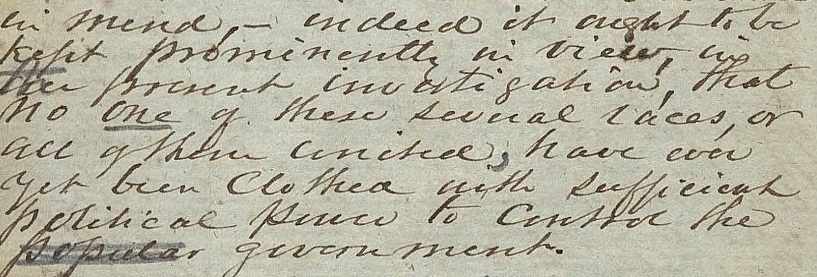 in mind, – indeed it ought to be
kept prominently in view, in
the present investigation, that
no one of these several races, or
all of them united, have ever
yet been Clothed with sufficient
political power to Control the
popular government.